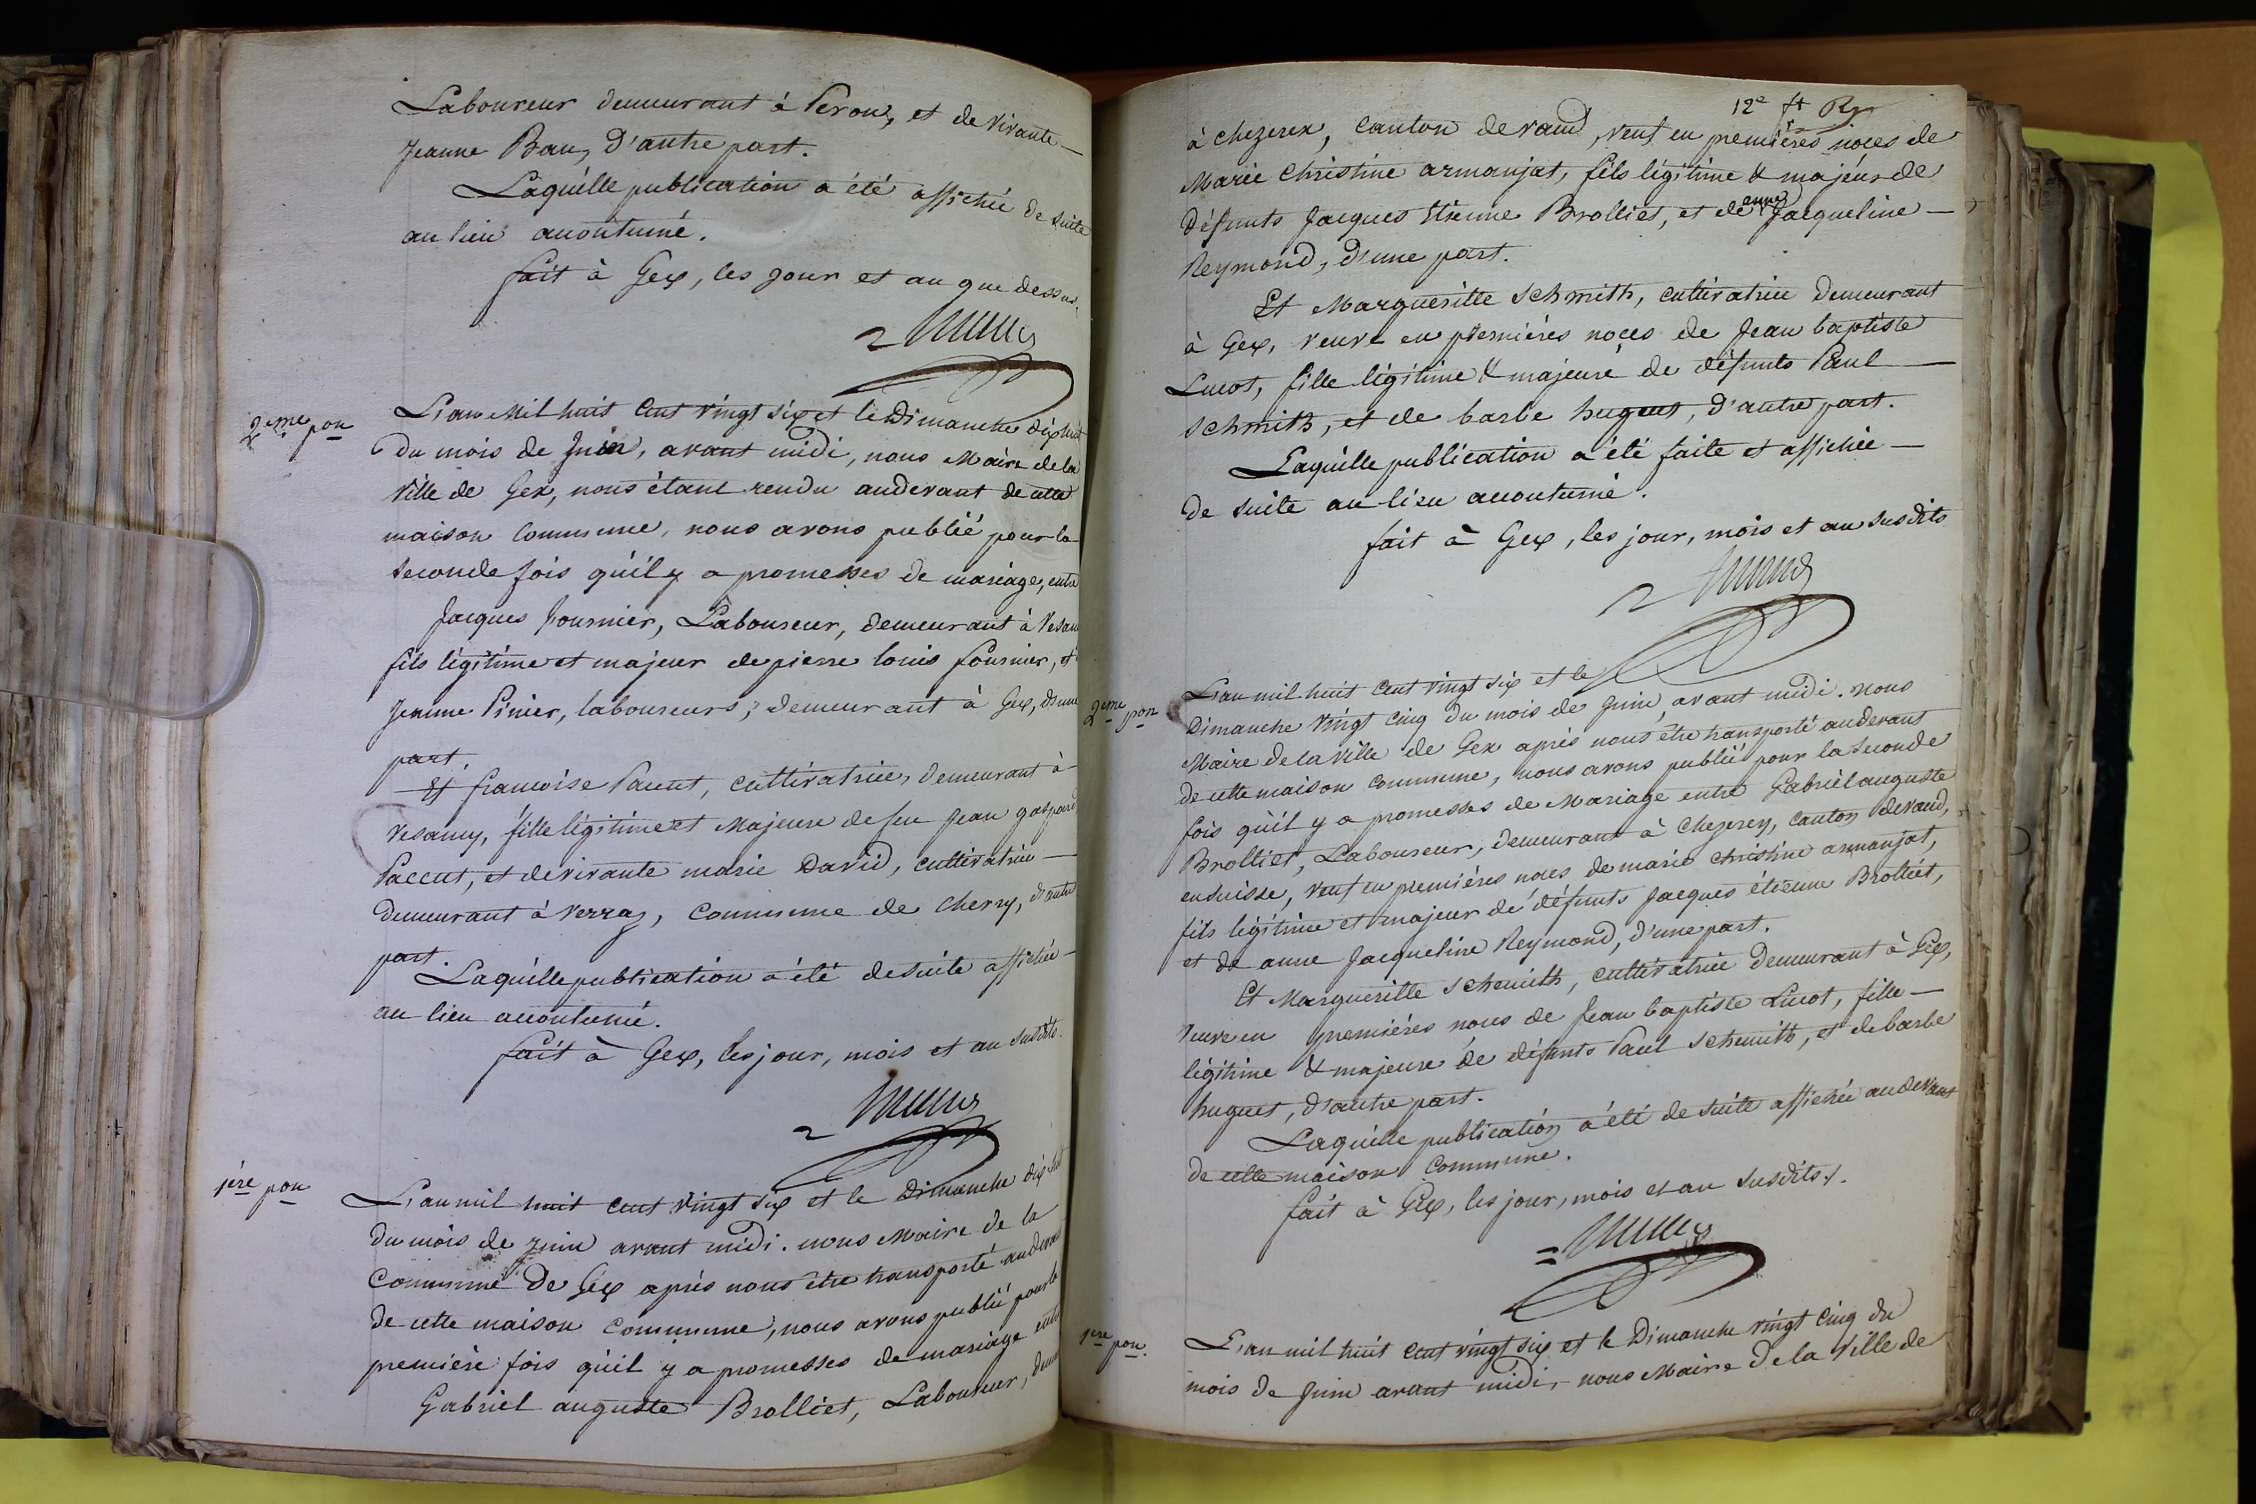 Laboureur demeurant à Peron, et de vivante
Jeanne Bau, D'autre part.
Laquelle publication a été affichée de suite
au lieu accoutumé.
fait à Gex, les jour et an que dessus.
2eme pon
L'an Mil huit Cent vingt six et le Dimanche dix huit
du mois de Juin, avant midi, nous Maire de la
Ville de Gex, nous étant rendu audevant de cette
maison commune, nous avons publié pour la
seconde fois qu'il y a promesses de mariage, entre
Jacques fournier, Laboureur, demeurant à
fils légitime et majeur de pierre louis fournier, et
Jeanne Pinier, laboureurs, demeurant à Gex, d'une
part.
Et francoise Pacut, cultivatrice, demeurant à
Vesancy, fille légitime et Majeure de feu Jean gaspard
et de vivante marie David, cultivatrice
demeurant à Verraz, commune de Chevry, d'autre
part.
Laquelle publication a été de suite affichée
au lieu accoutumé.
fait à Gex, les jour, mois et an susdits.
1ère pon
L'an mil huit cent vingt six et le Dimanche dix huit
du mois de juin avant midi. nous Maire de la
Commune de Gex après nous être transporté audevant
de cette maison commune, nous avons publié pour la
première fois qu'il y a promesses de mariage entre
Gabriel auguste Brolliet, Laboureur,
12e ft
à chezerex, canton de vaud, veuf en premières noces de
Marie Christine armanjat, fils légitime & majeur de
défunts Jacques Etienne Brolliet, et de anne Jacqueline
Reymond, d'une part.
Et Margueritte Schmith, cultivatrice demeurant
à Gex, veuve en premières noces de Jean baptiste
Lucot, fille légitime & majeure de défunts Paul
Schmith, et de barbe huguet, d'autre part.
Laquelle publication a été faite et affichée
de suite au lieu accoutumé.
fait à Gex, les jour, mois et an susdits
2eme pon
L'an mil huit cent vingt six et le
Dimanche vingt cinq du mois de Juin, avant midi. nous
Maire de la Ville de Gex après nous être transporté audevant
de cette maison commune, nous avons publié pour la seconde
fois qu'il y a promesses de Mariage entre Gabriel auguste
Brolliet, Laboureur, demeurant à Chezerey, canton de vaud,
en suisse, veuf en premières noces de marie christine armanjat,
fils légitime et majeur de défunts Jacques étienne Brolliet,
et de anne Jacqueline Reymond, d'une part.
Et Margueritte Schmith, cultivatrice demeurant à Gex,
veuve en premières noces de Jean baptiste Lucot, fille
légitime & majeure de défunts Paul Schmith, et de barbe
huguet, d'autre part.
Laquelle publication a été de suite affichée au devant
de cette maison commune.
fait à Gex, les jour, mois et an susdits.
1ere pon.
L'an mil huit cent vingt six et le Dimanche vingt cinq du
mois de Juin avant midi, nous Maire de la Ville de